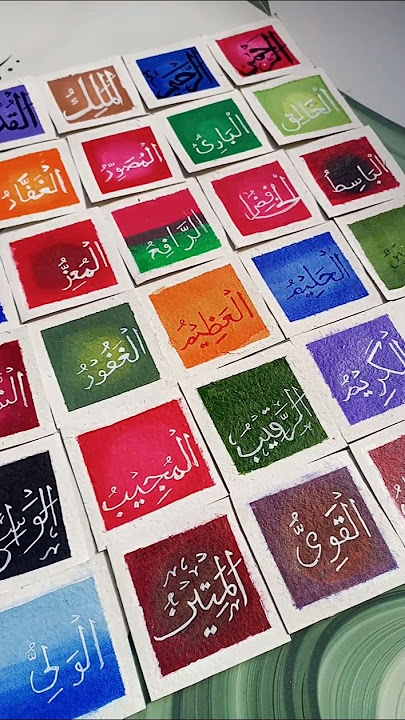 الرَّحْمَنُ
الرَّحِيمُ
الْمَلِكُ
الْخَالِقُ
الْبَارِئُ
الْمُصَوِّرُ
الْغَفَّارُ
الْبَاسِطُ
الْخَافِضُ
الرَّافِعُ
الْمُعِزُّ
الْحَلِيمُ
الْعَظِيمُ
الْغَفُورُ
الْكَرِيمُ
الرَّقِيبُ
الْمُجِيبُ
الْقَوِيُّ
الْمَتِينُ
الْوَلِيُّ